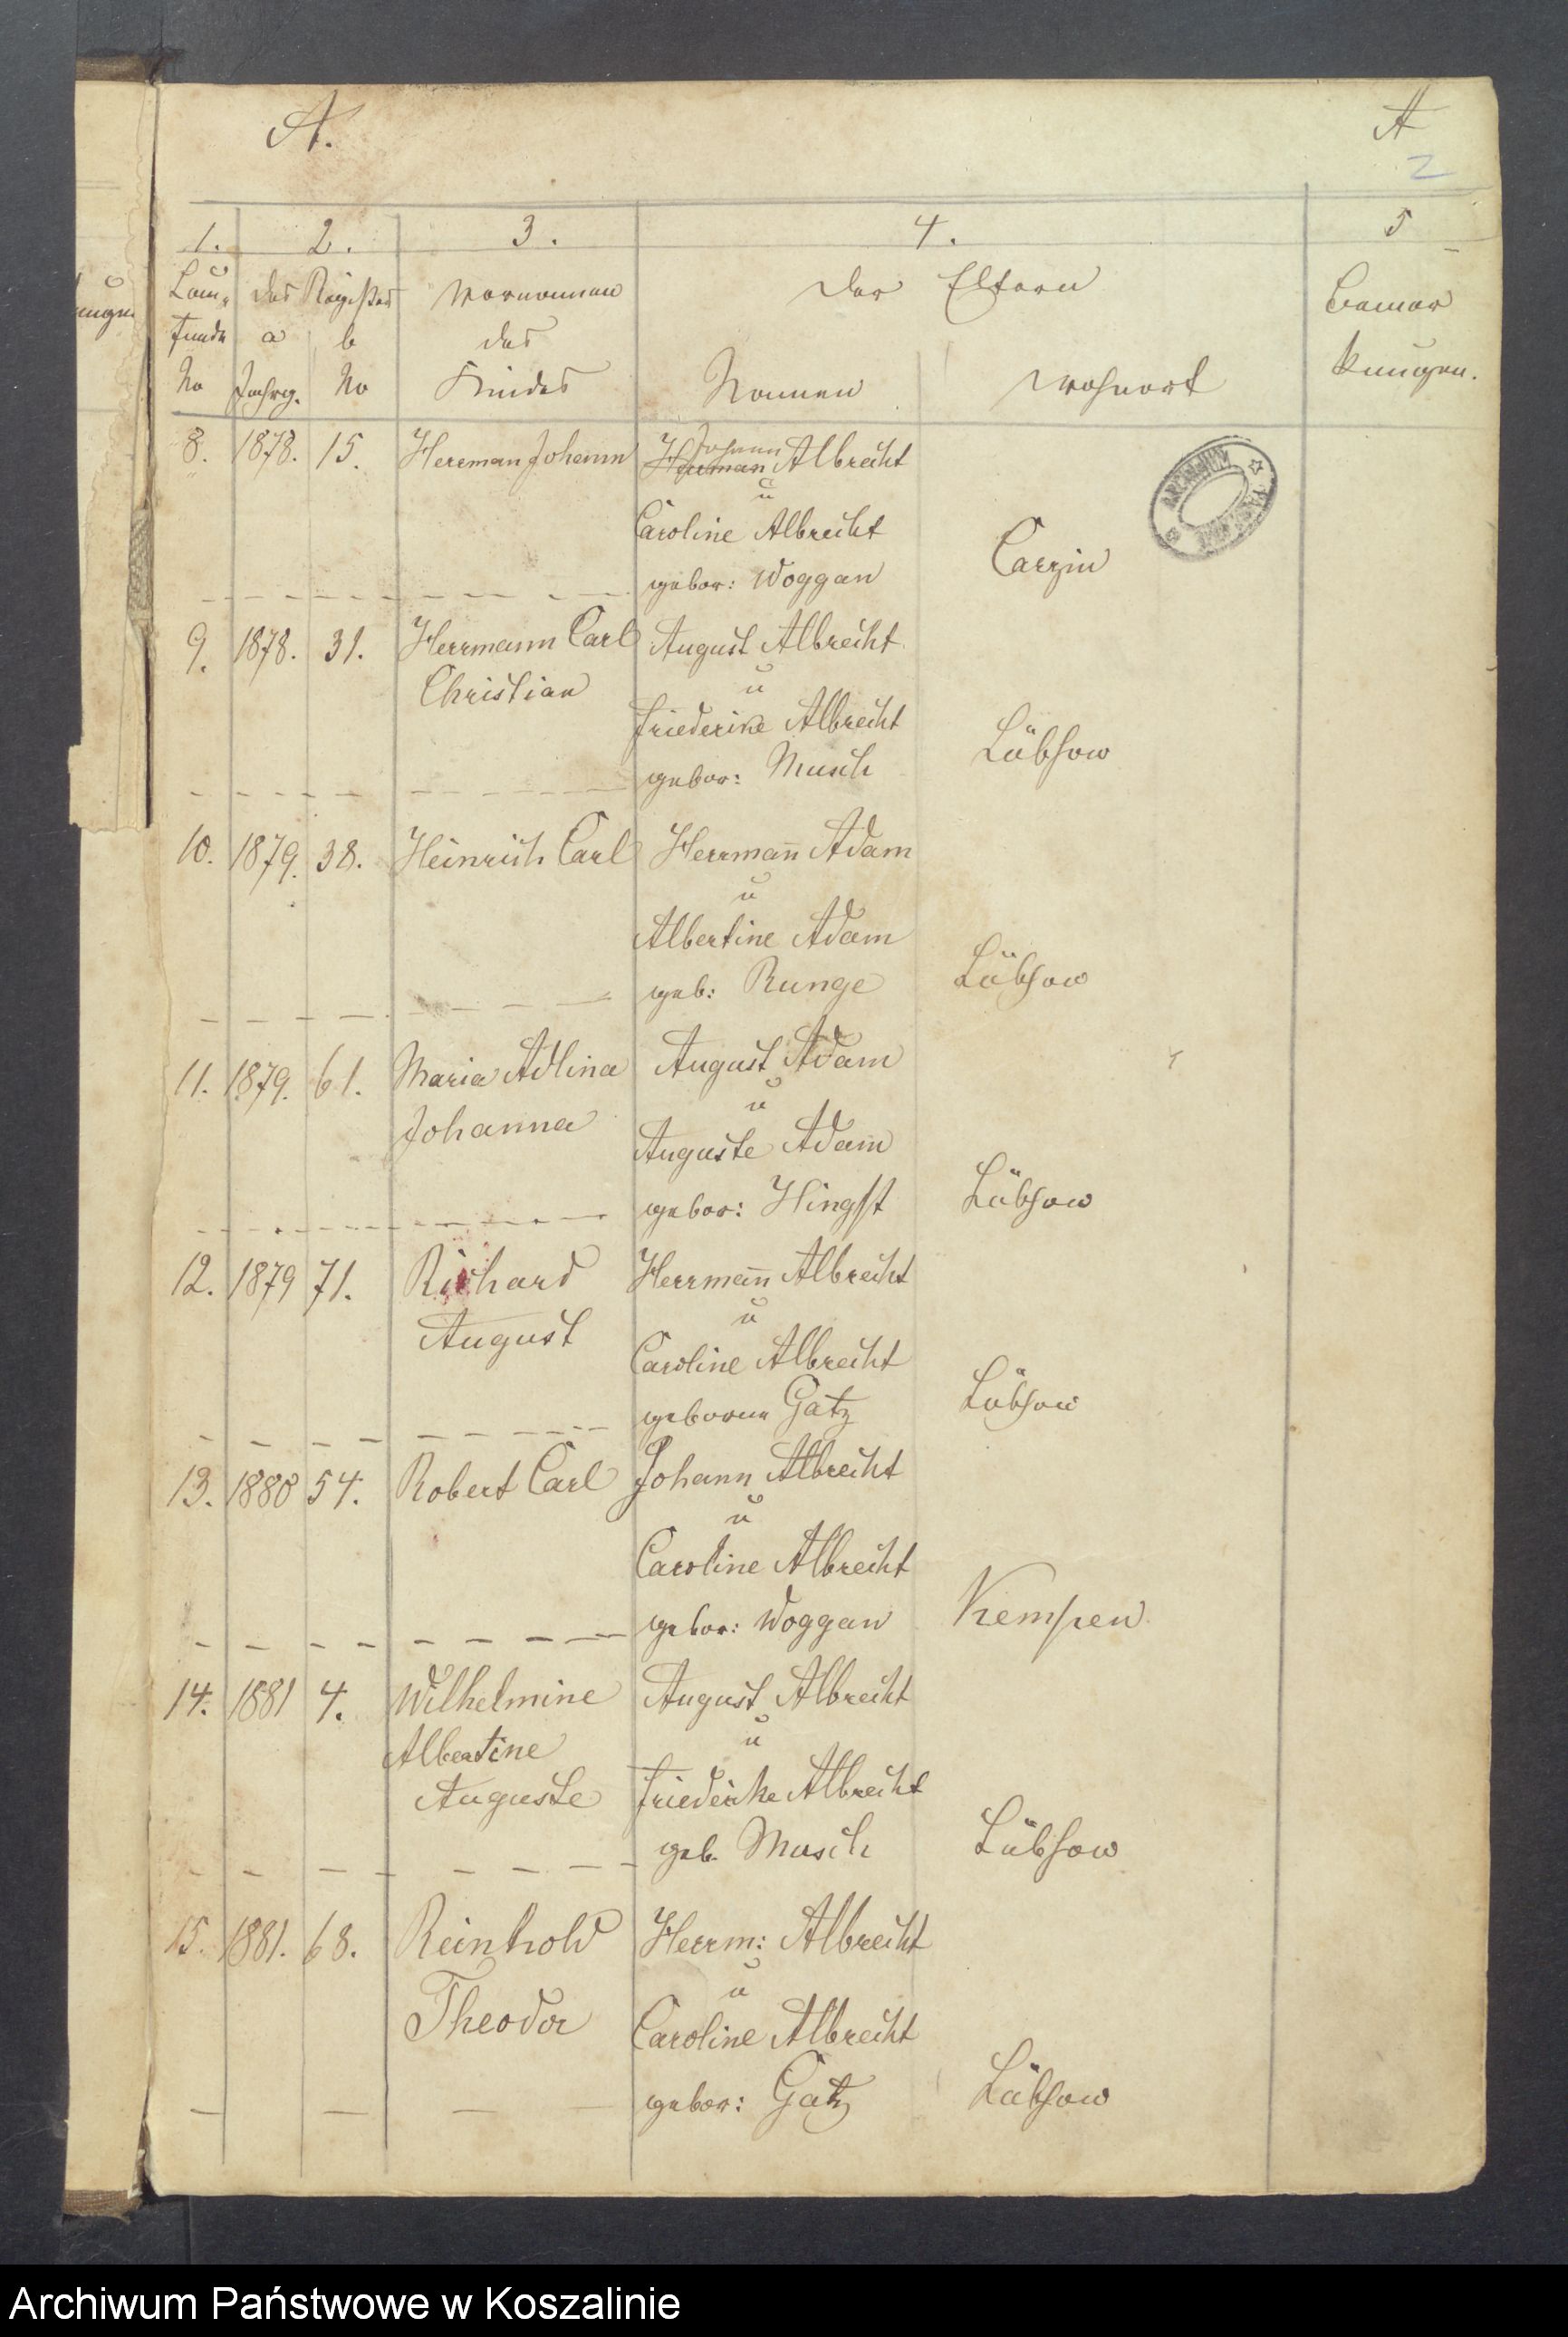 A. A
2
1. 2. 3. 4. 5
Lau- des Registers Vornamen der Eltern Bemer
fende a b des kungen.
No Jahrg. No Kindes Namen Wohnort
8. 1878. 15. Herrman Johann Johann
Herrman Albrecht
u
Caroline Albrecht
gebor: Woggan Carzin
9. 1878. 31. Herrmann Carl August Albrecht
Christian u
Friederike Albrecht
gebor: Musch Lübsow
10. 1879. 38. Heinrich Carl Herrman̄ Adam
u
Albertine Adam
geb: Runge Lübsow
11. 1879. 61. Maria Adlina August Adam
Johanna u
Auguste Adam
gebor: Hingst Lübsow
12. 1879 71. Richard Herrman̄ Albrecht
August u
Caroline Albrecht
geborne Gatz Lübsow
13. 1880 54. Robert Carl Johann Albrecht
u
Caroline Albrecht
gebor: Woggan Kempen
14. 1881 4. Wilhelmine August Albrecht
Albertine u
Auguste Friederike Albrecht
geb. Musch Lübsow
15. 1881. 68. Reinhold Herrm: Albrecht
Theodor u
Caroline Albrecht
gebor: Gatz Lübsow
Archiwum Państwowe w Koszalinie